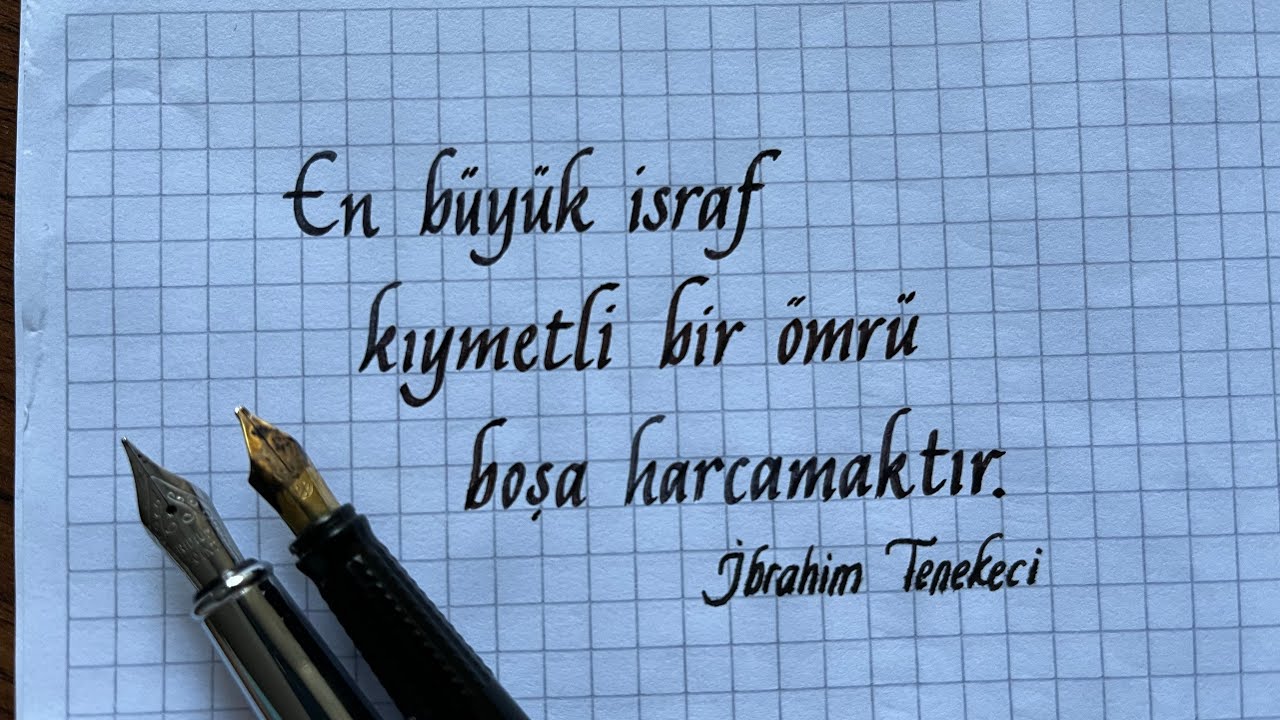 En büyük israf
kıymetli bir ömrü
boşa harcamaktır.
İbrahim Tenekeci